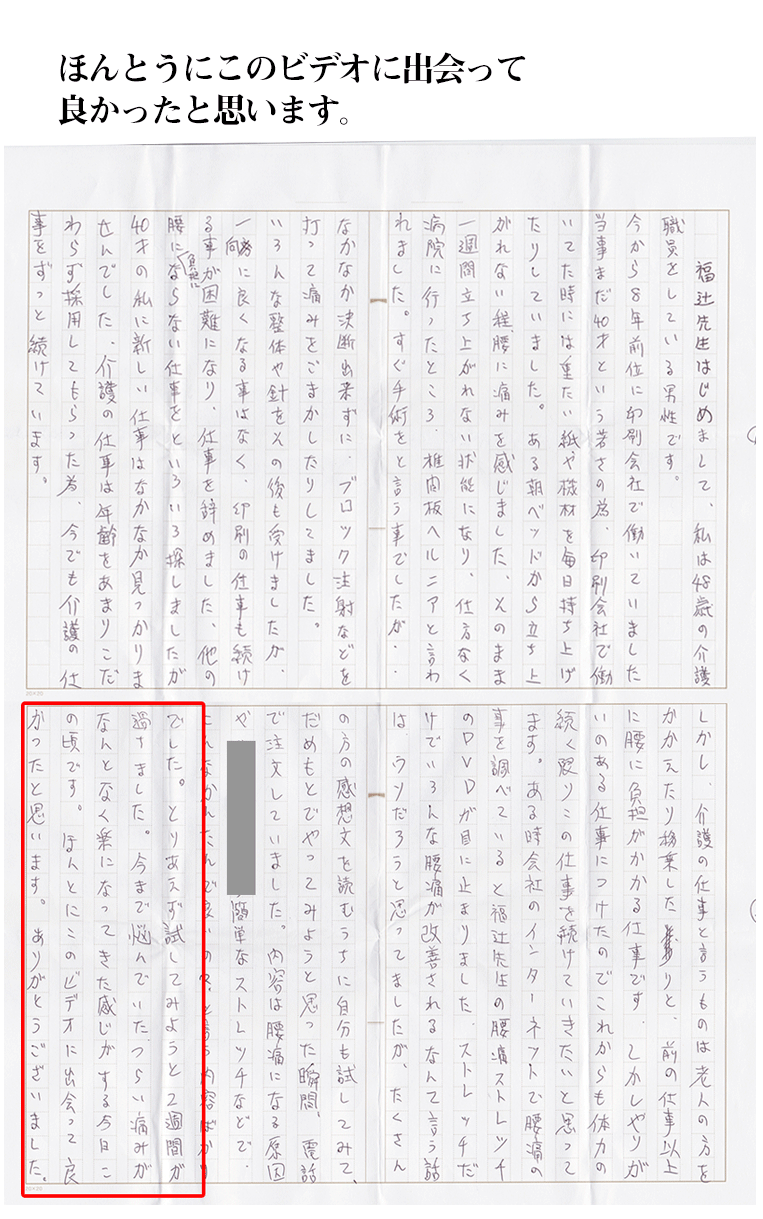 ほんとうにこのビデオに出会って
良かったと思います。
福辻先生はじめまして、私は48歳の介護
職員をしている男性です。
今から8年前位に印刷会社で働いていました
当事まだ40才という若さの為、印刷会社で働
いてた時には重たい紙や機材を毎日持ち上げ
たりしていました。ある朝ベッドから立ち上
がれない程、腰に痛みを感じました、そのまま
一週間立ち上がれない状態になり、仕方なく
病院に行ったところ、椎間板ヘルニアと言わ
れました。すぐ手術をと言う事でしたが、、
なかなか決断出来ずに、ブロック注射などを
打って痛みをごまかしたりしてました。
いろんな整体や針をその後も受けましたが、
一向に良くなる事はなく、印刷の仕事も続け
る事が困難になり、仕事を辞めました、他の
腰に負担にならない仕事をといろいろ探しましたが
40才の私に新しい仕事はなかなか見つかりま
せんでした、介護の仕事は年齢をあまりこだ
わらず採用してもらった為、今でも介護の仕
事をずっと続けています。
しかし、介護の仕事と言うものは老人の方を
かかえたり移乗したりと、前の仕事以上
に腰に負担がかかる仕事です、しかしやりが
いのある仕事につけたのでこれからも体力の
続く限りこの仕事を続けていきたいと思って
ます。ある時会社のインターネットで腰痛の
事を調べていると福辻先生の腰痛ストレッチ
のDVDが目に止まりました、ストレッチだ
けでいろんな腰痛が改善されるなんて言う話
は、ウソだろうと思ってましたが、たくさん
の方の感想文を読むうちに自分も試してみて、
だめもとでやってみようと思った瞬間、電話
で注文していました。内容は腰痛になる原因
や 簡単なストレッチなどで、
こんなかんたんで良いの?と言う内容ばかり
でした。とりあえず試してみようと2週間が
過ぎました。今まで悩んでいたつらい痛みが
なんとなく楽になってきた感じがする今日こ
の頃です。ほんとにこのビデオに出会って良
かったと思います。ありがとうございました。
20×20
20×20